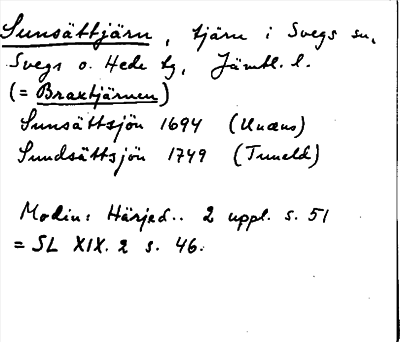 Sunsättjärn, tjärn i Svegs sn,
Svegs o. Hede tg, Jämtl. l.
(= Braxtjärnen)
Sunsättsjön 1694 (Unæus)
Sundsättsjön 1749 (Tuneld)
Modin: Härjed.. 2 uppl. s. 51
= SL XIX. 2 s. 46.